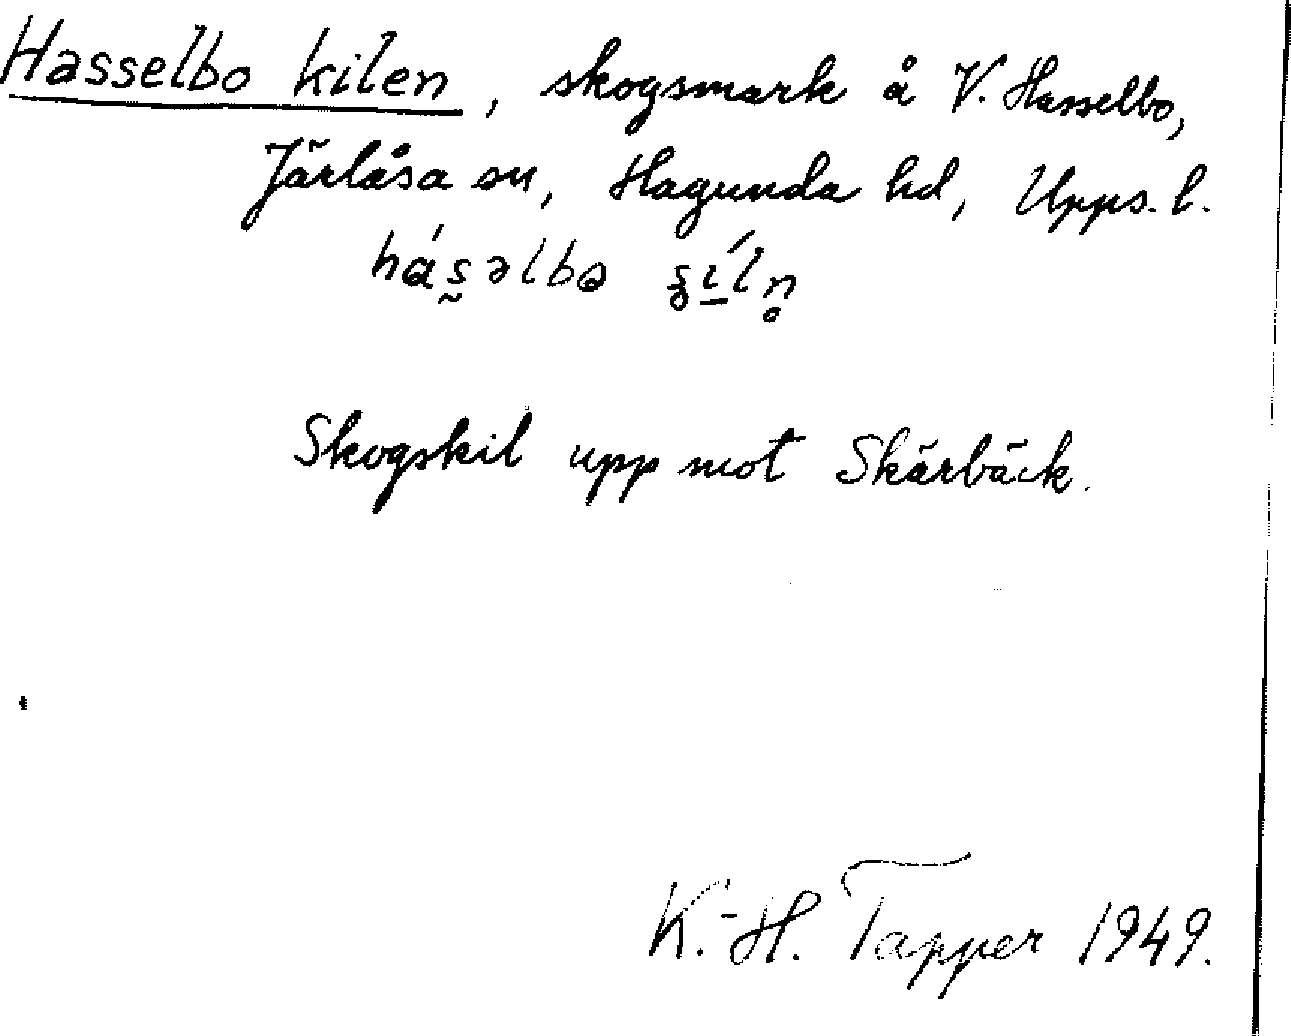 Hasselbo kilen, skogsmark å V. Hasselbo,
Järlåsa sn, Hagunda hd, Upps. l.
Skogskil upp mot Skärbäck.
K.-H. Tapper 1949.